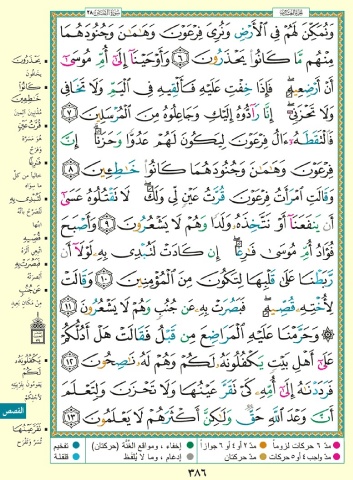 سورة القصص ٢٨
وَنُمَكِّنَ لَهُمْ فِي ٱلْأَرْضِ وَنُرِيَ فِرْعَوْنَ وَهَٰمَٰنَ وَجُنُودَهُمَا
مِنْهُم مَّا كَانُوا۟ يَحْذَرُونَ ٦ وَأَوْحَيْنَآ إِلَىٰٓ أُمِّ مُوسَىٰٓ
أَنْ أَرْضِعِيهِ ۖ فَإِذَا خِفْتِ عَلَيْهِ فَأَلْقِيهِ فِي ٱلْيَمِّ وَلَا تَخَافِي
وَلَا تَحْزَنِيٓ ۖ إِنَّا رَآدُّوهُ إِلَيْكِ وَجَاعِلُوهُ مِنَ ٱلْمُرْسَلِينَ ٧
فَٱلْتَقَطَهُۥٓ ءَالُ فِرْعَوْنَ لِيَكُونَ لَهُمْ عَدُوًّا وَحَزَنًا ۗ إِنَّ
فِرْعَوْنَ وَهَٰمَٰنَ وَجُنُودَهُمَا كَانُوا۟ خَٰطِـِٔينَ ٨
وَقَالَتِ ٱمْرَأَتُ فِرْعَوْنَ قُرَّتُ عَيْنٍ لِّي وَلَكَ ۖ لَا تَقْتُلُوهُ عَسَىٰٓ
أَن يَنفَعَنَآ أَوْ نَتَّخِذَهُۥ وَلَدًا وَهُمْ لَا يَشْعُرُونَ ٩ وَأَصْبَحَ
فُؤَادُ أُمِّ مُوسَىٰ فَٰرِغًا ۖ إِن كَادَتْ لَتُبْدِي بِهِۦ لَوْلَآ أَن
رَّبَطْنَا عَلَىٰ قَلْبِهَا لِتَكُونَ مِنَ ٱلْمُؤْمِنِينَ ١٠ وَقَالَتْ
لِأُخْتِهِۦ قُصِّيهِ ۖ فَبَصُرَتْ بِهِۦ عَن جُنُبٍ وَهُمْ لَا يَشْعُرُونَ ١١
۞ وَحَرَّمْنَا عَلَيْهِ ٱلْمَرَاضِعَ مِن قَبْلُ فَقَالَتْ هَلْ أَدُلُّكُمْ
عَلَىٰٓ أَهْلِ بَيْتٍ يَكْفُلُونَهُۥ لَكُمْ وَهُمْ لَهُۥ نَٰصِحُونَ ١٢
فَرَدَدْنَٰهُ إِلَىٰٓ أُمِّهِۦ كَيْ تَقَرَّ عَيْنُهَا وَلَا تَحْزَنَ وَلِتَعْلَمَ
أَنَّ وَعْدَ ٱللَّهِ حَقٌّ وَلَٰكِنَّ أَكْثَرَهُمْ لَا يَعْلَمُونَ ١٣
يَحْذَرُونَ
كَانُوا۟
خَٰطِـِٔينَ
قُرَّتُ عَيْنٍ
فَٰرِغًا
لَتُبْدِي بِهِۦ
قُصِّيهِ
فَبَصُرَتْ بِهِۦ
عَن جُنُبٍ
يَكْفُلُونَهُۥ
لَكُمْ
تَقَرَّ عَيْنُهَا
القصص
مدّ ٦ حركات لزوماً
مدّ ٢ أو ٤ أو ٦ جوازاً
إخفاء، ومواقع الغنّة (حركتان)
تفخيم
مدّ واجب ٤ أو ٥ حركات
مدّ حركتان
إدغام، وما لا يُلفَظ
قلقلة
٣٨٦